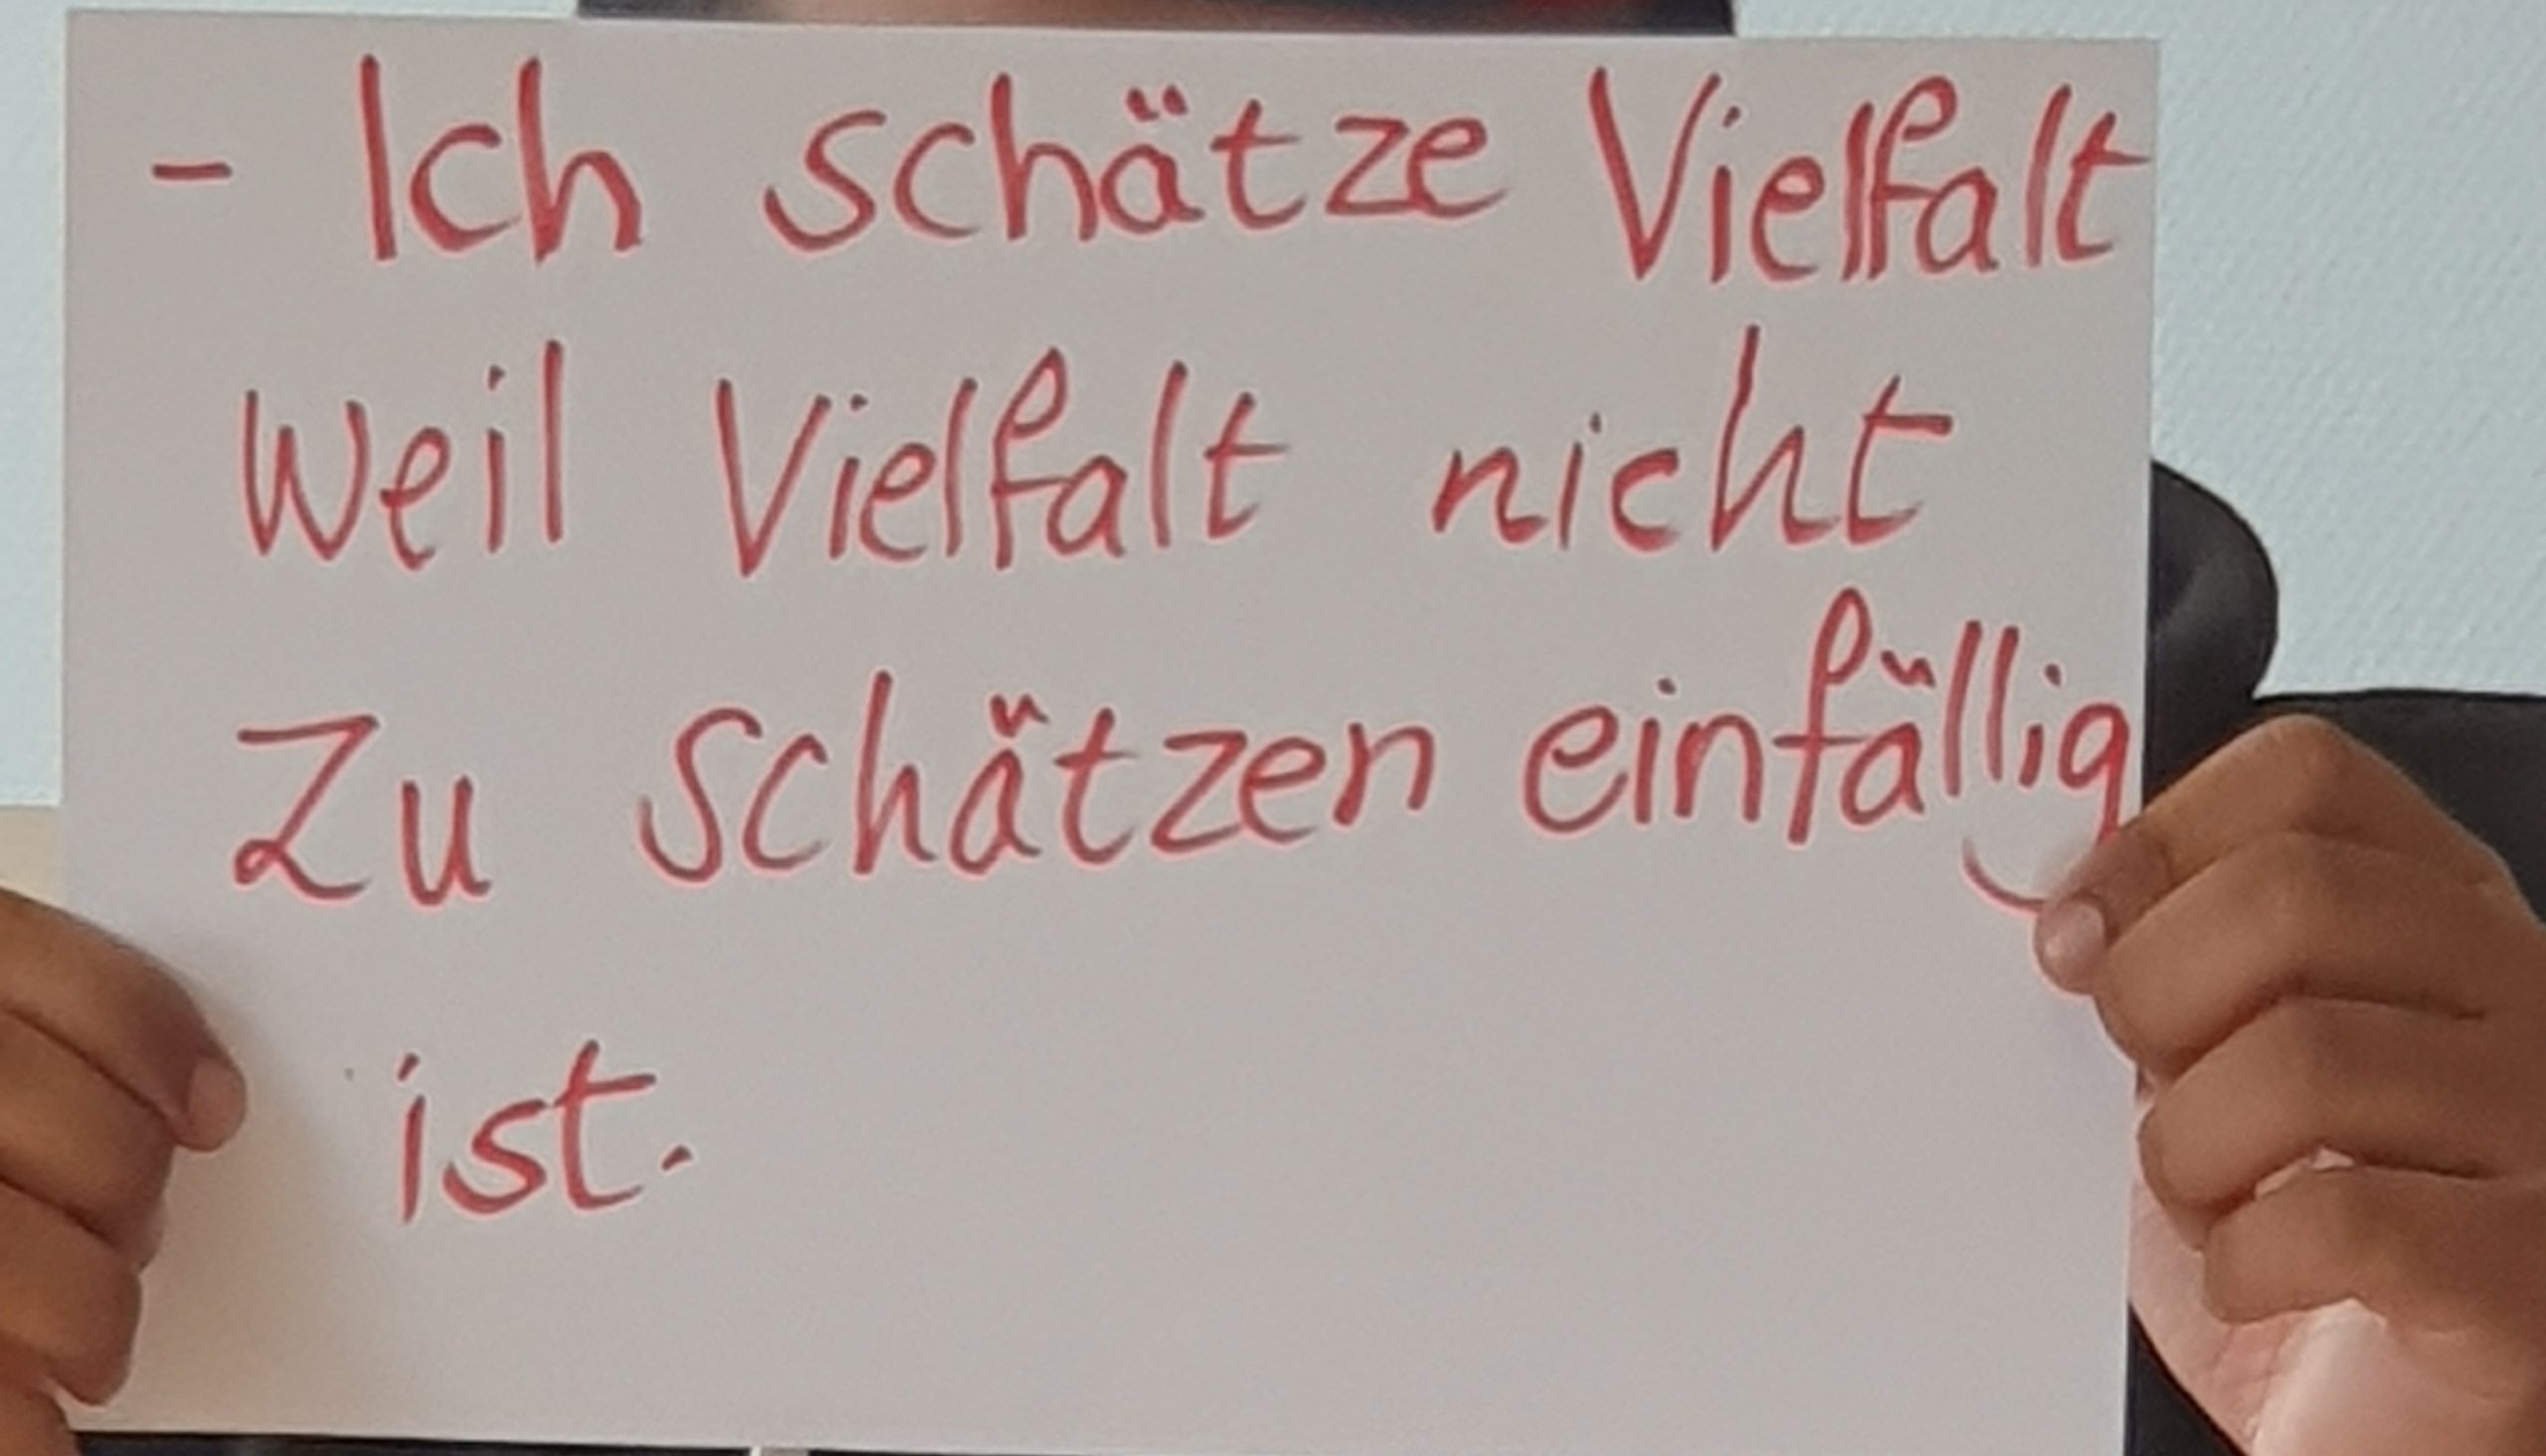 - Ich schätze Vielfalt
weil Vielfalt nicht
zu schätzen einfällig
ist.